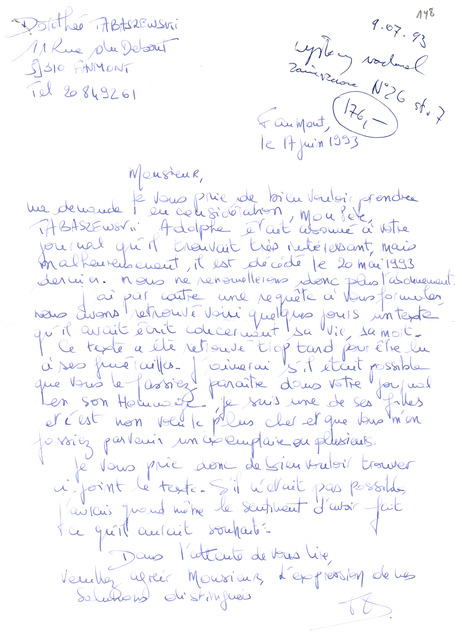 148
Dorothée TABASZEWSKI
11 Rue du Debout
Tel 20 849261
9.07.93
N°26 st. 7
176,-
Faumont,
le 17 juin 1993
Monsieur,
Je vous prie de bien vouloir prendre
ma demande en considération, Mon Père,
TABASZEWSKI Adolphe était abonné à votre
journal qu'il trouvait très intéressant, mais
malheureusement, il est décédé le 20 mai 1993
dernier. Nous ne renouvellerons donc pas l'abonnement.
J'ai par contre une requête à vous formuler,
nous avons retrouvé voici quelques jours un texte
qu'il avait écrit concernant sa vie, sa mort.
Ce texte a été retrouvé trop tard pour être lu
à ses funérailles. J'aimerai s'il était possible
que vous le fassiez paraître dans votre journal
en son Honneur, je suis une de ses filles
et c'est mon voeu le plus cher et que vous m'en
fassiez parvenir un exemplaire ou plusieurs.
Je vous prie donc de bien vouloir trouver
ci joint le texte. S'il n'était pas possible,
j'aurais quand même le sentiment d'avoir fait
ce qu'il aurait souhaité.
Dans l'attente de vous lire,
Veuillez agréer Monsieur, l'expression de mes
Salutations distinguées